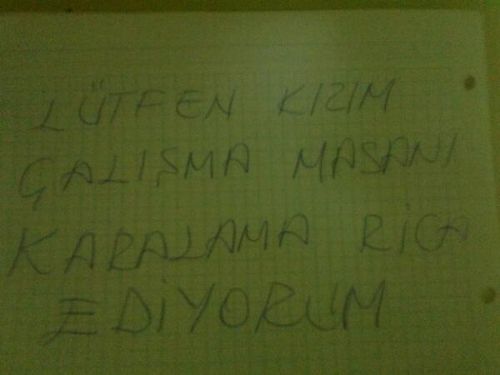 LÜTFEN KIZIM
ÇALIŞMA MASANI
KARALAMA RİCA
EDİYORUM